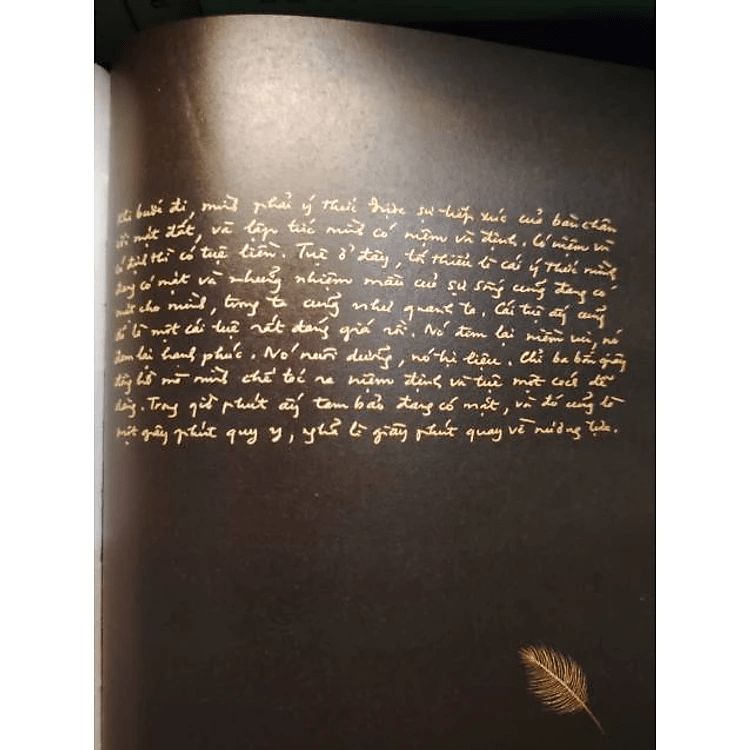 Khi bước đi mình phải ý thức được sự tiếp xúc của bàn chân
với mặt đất, và lập tức mình có niệm và định. Có niệm và
có định thì có tuệ liền. Tuệ ở đây, tối thiểu là cái ý thức mình
đang có mặt và những nhiệm mầu của sự sống cũng đang có
mặt cho mình, trong ta cũng như quanh ta. Cái tuệ ấy cũng
đã là một cái tuệ rất đáng giá rồi. Nó đem lại niềm vui, nó
đem lại hạnh phúc. Nó nuôi dưỡng, nó trị liệu. Chỉ ba bốn giây
đồng hồ mà mình chế tác ra niệm định và tuệ một cách dễ
dàng. Trong giờ phút ấy tam bảo đang có mặt, và đó cũng là
một giây phút quy y, nghĩa là giây phút quay về nương tựa.